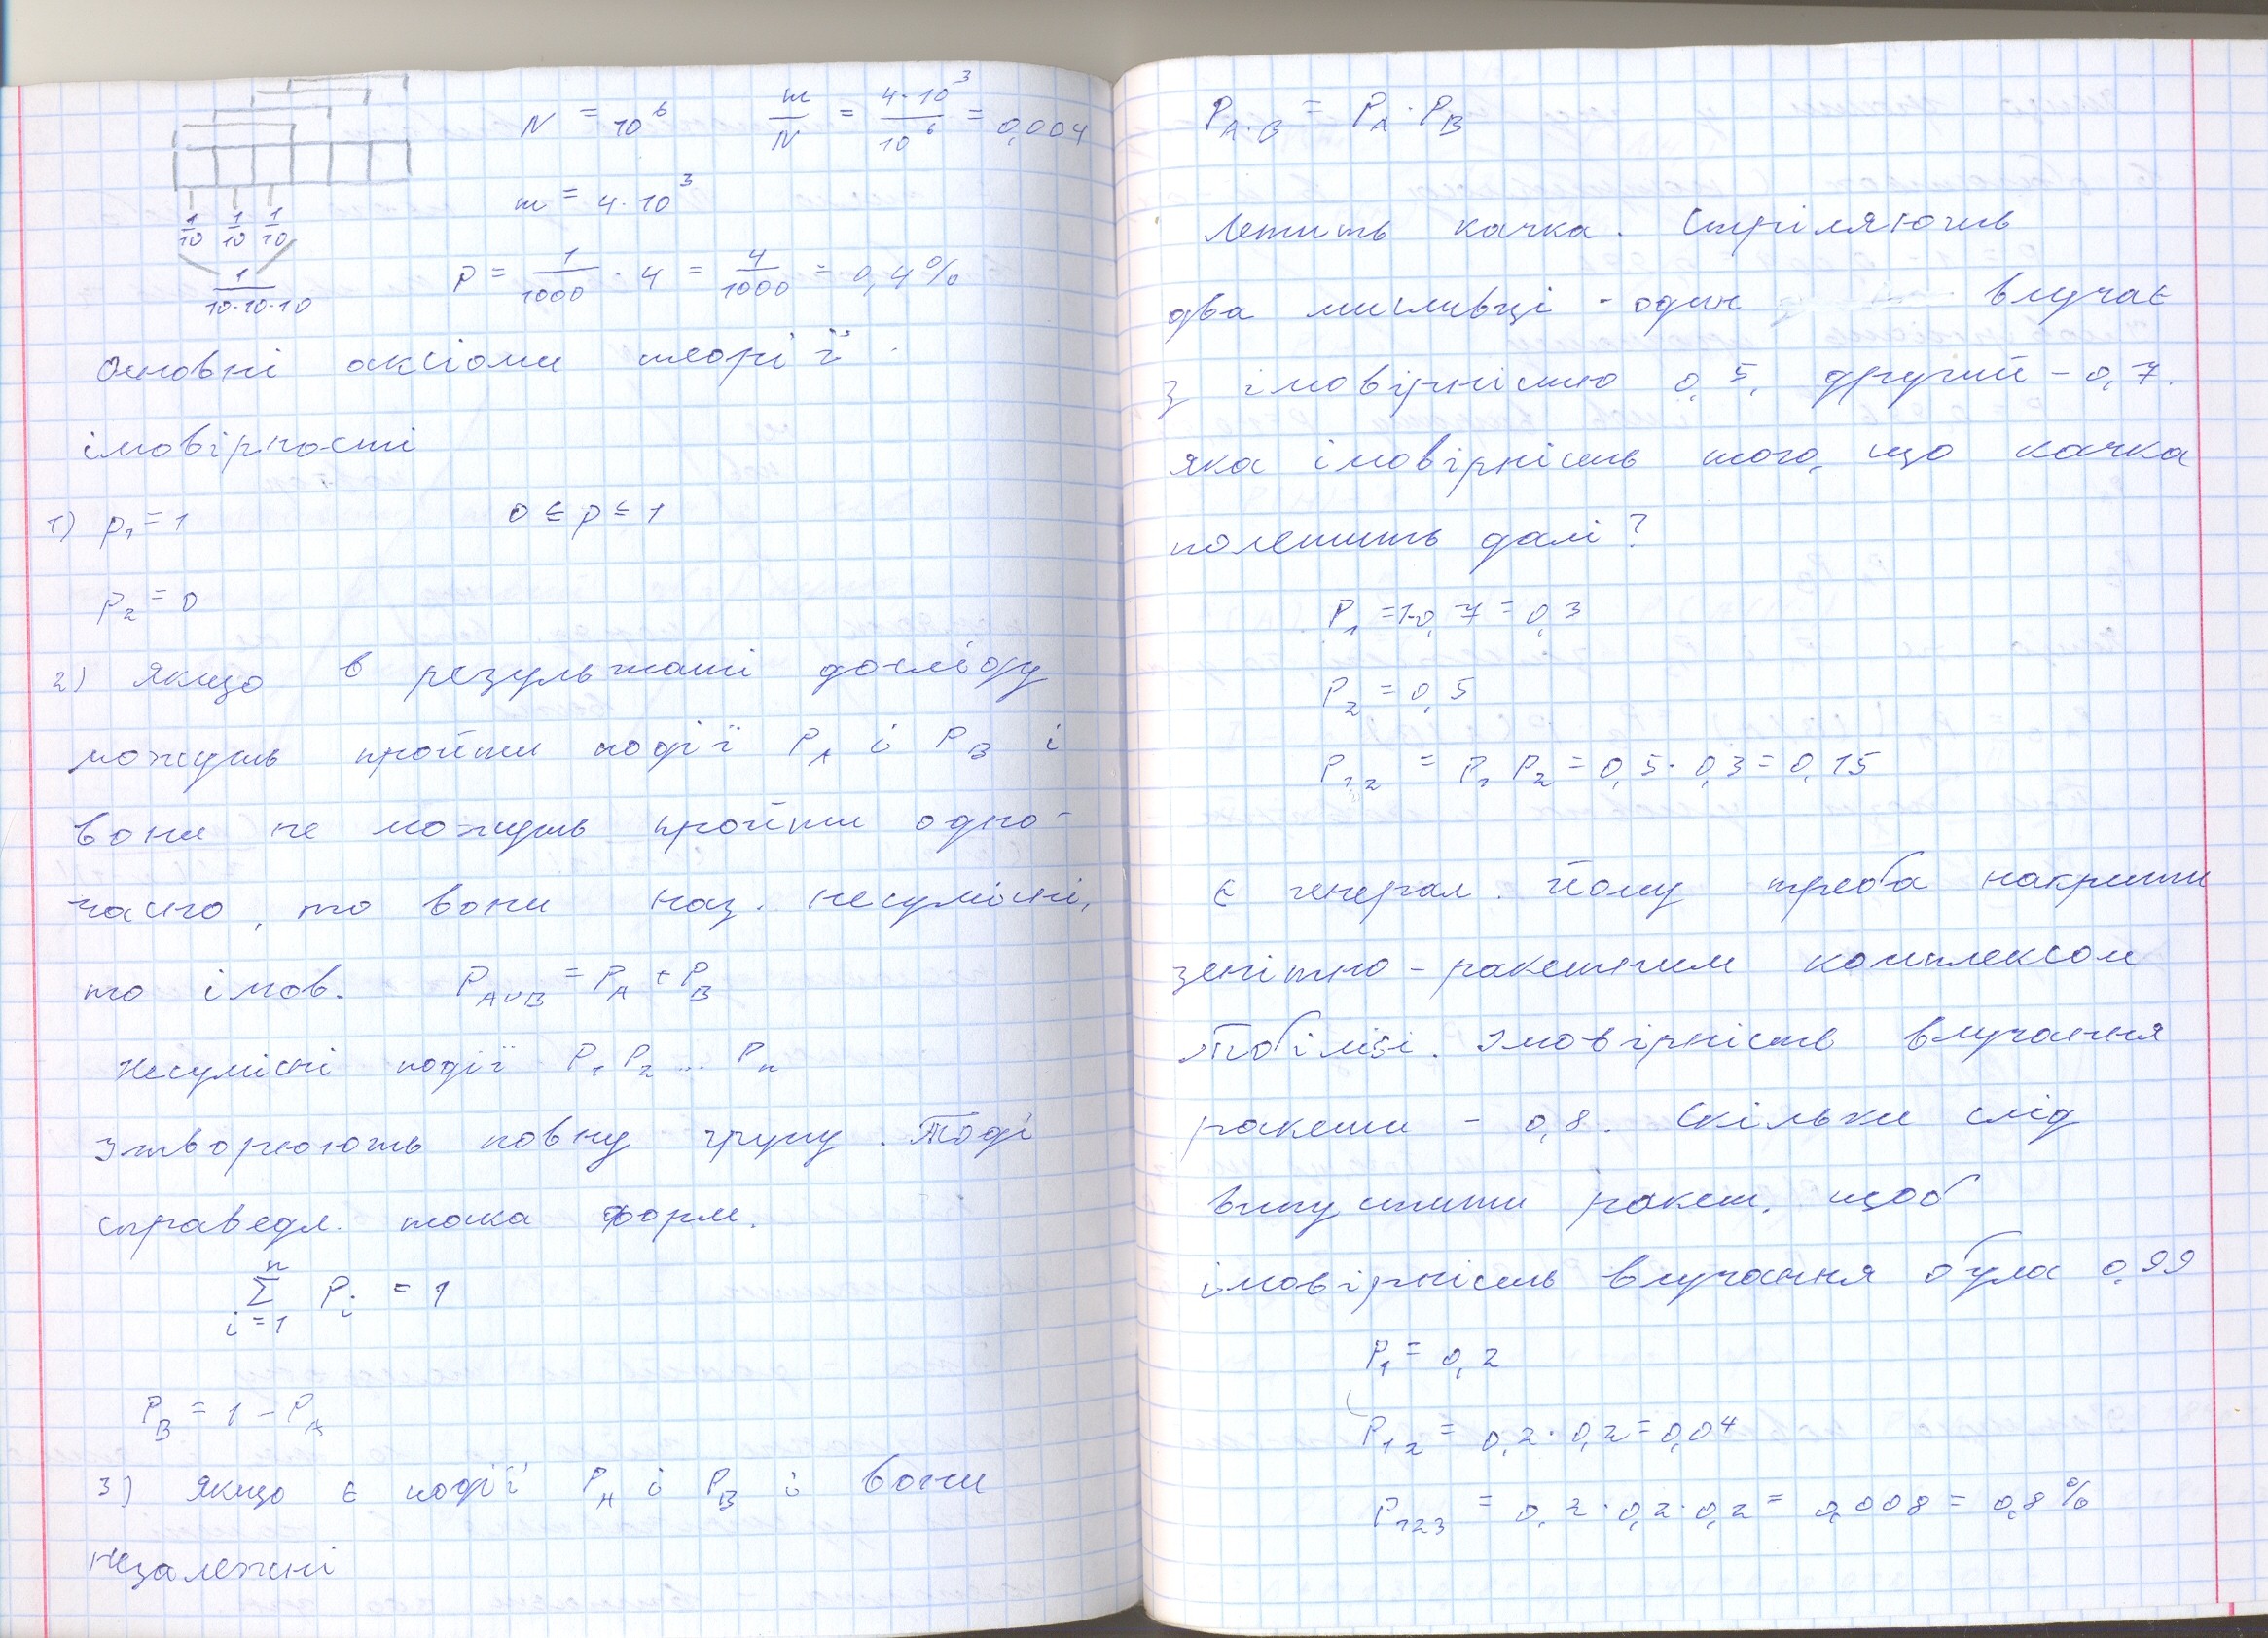 N = 10⁶ m/N = 4·10³/10⁶ = 0,004
m = 4·10³
1/10 1/10 1/10
1/10·10·10
P = 1/1000 · 4 = 4/1000 = 0,4%
Основні аксіоми теорії
імовірності
1) p₁ = 1 0 ≤ p ≤ 1
p₂ = 0
2) Якщо в результаті досліду
можуть пройти події P_A і P_B і
вони не можуть пройти одно-
часно, то вони наз. несумісні,
то імов. P_A∪B = P_A + P_B
Несумісні події P₁ P₂ ... Pₙ
утворюють повну групу. Тоді
справедл. така форм.
n
Σ Pᵢ = 1
i=1
P_B = 1 - P_A
3) Якщо є події P_A і P_B і вони
незалежні
P_A·B = P_A · P_B
Летить качка. Стріляють
два мисливці - один влучає
з імовірністю 0,5, другий - 0,7.
яка імовірність того, що качка
полетить далі?
P₁ = 1-0,7 = 0,3
P₂ = 0,5
P₁₂ = P₁ P₂ = 0,5 · 0,3 = 0,15
Є генерал. Йому треба накрити
зенітно-ракетним комплексом
Тбілісі. Імовірність влучання
ракети - 0,8. Скільки слід
випустити ракет, щоб
імовірність влучання була 0,99
P₁ = 0,2
P₁₂ = 0,2 · 0,2 = 0,04
P₁₂₃ = 0,2 · 0,2 · 0,2 = 0,008 = 0,8%